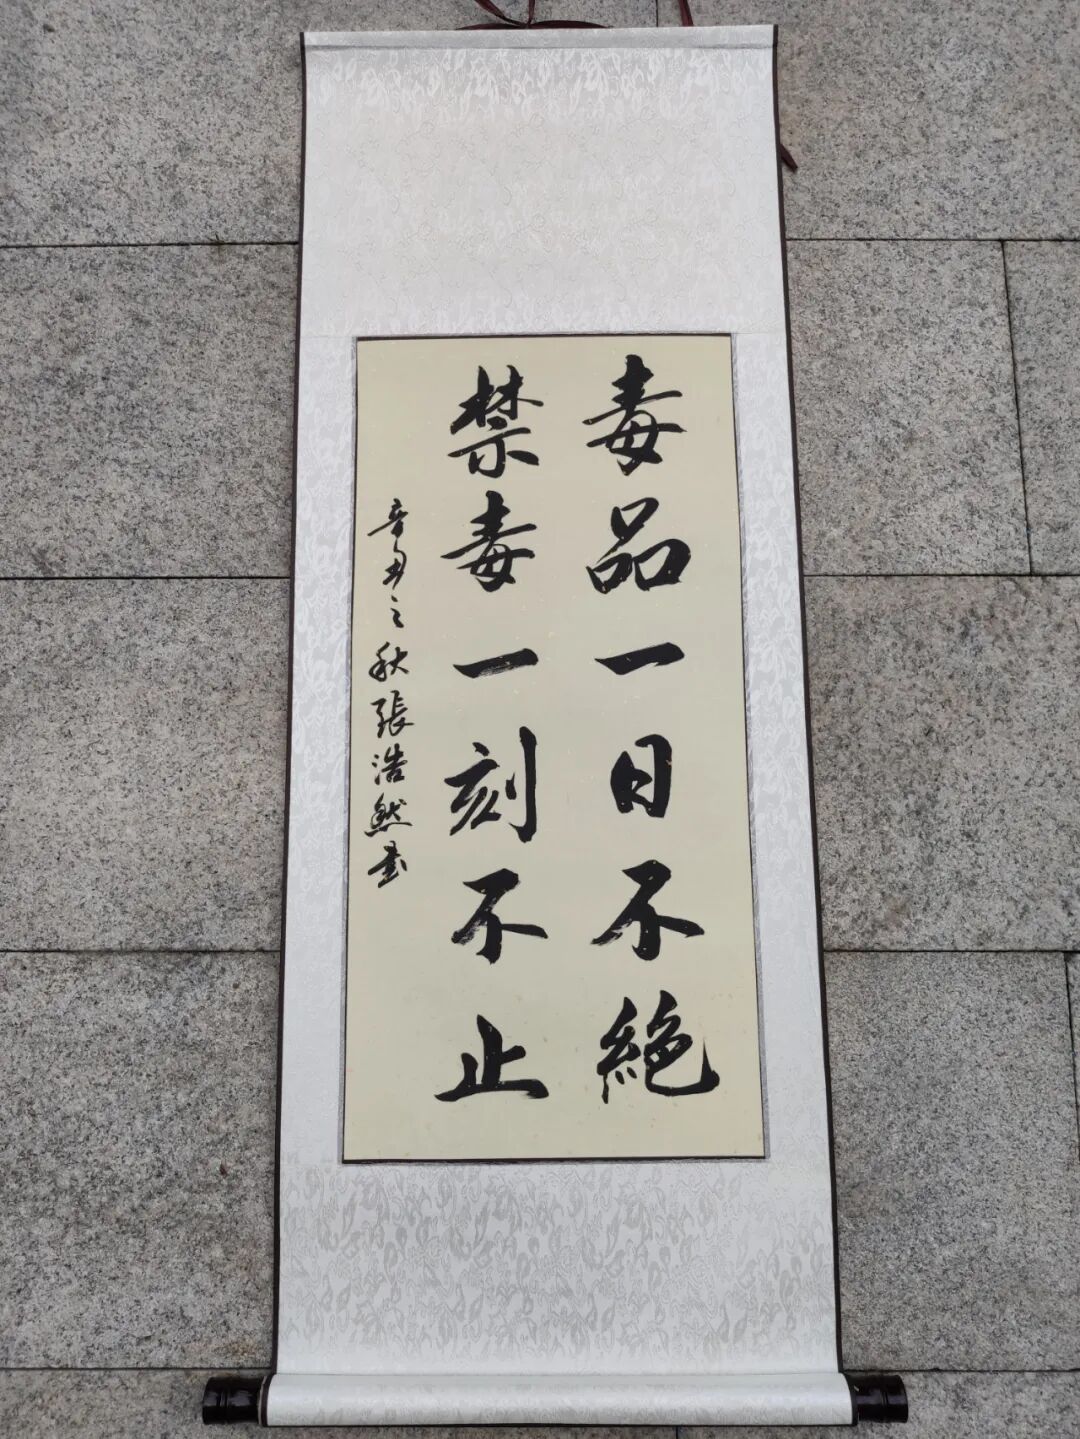 毒品一日不絕
禁毒一刻不止
辛丑之秋張浩然書